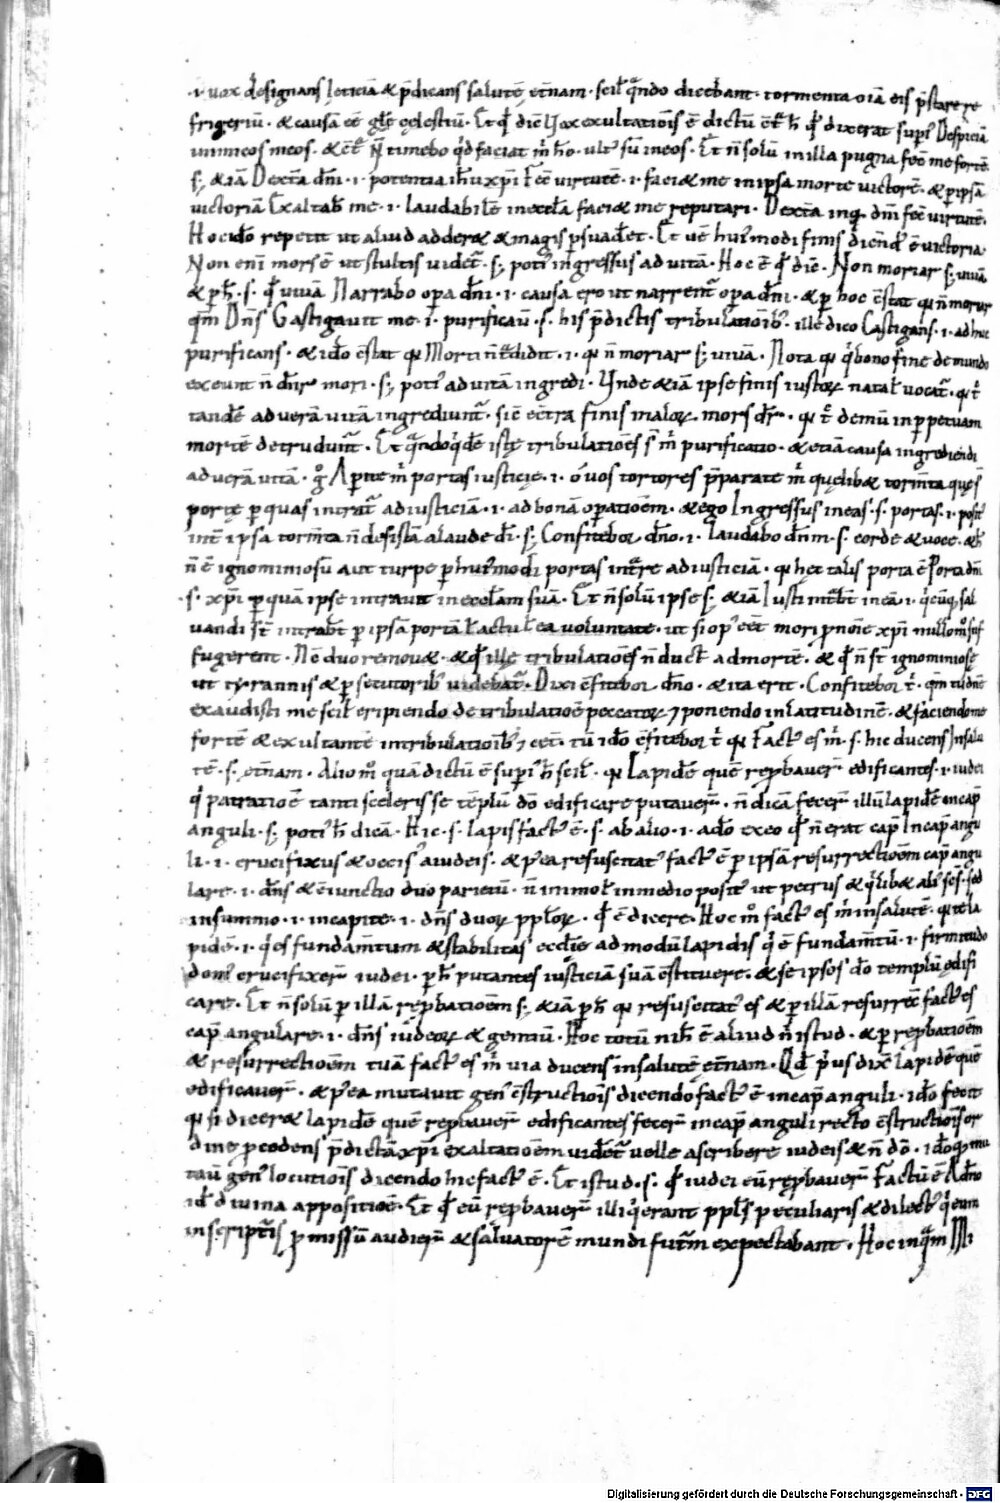 .i. uox designans leticiā & p̄dicans salutē et̄nam . scil' q̄ndo dicebant . tormenta oīa eis p̄stare re
frigeriū . & causā eē gl'e celestiū . Et qđ diē Uox exultatiōis ē dictū ē & h̄ qđ dixerat supi' Despiciā
inimicos meos . &
s; &iā Dext̄a dn̄i . i . potentia ih̄u xp̄i Fec̄ virtutē . i . faci& me in ipsa morte victorē . & p ipsā
victoriā Exaltab̄ me . i . laudabilē in eccl'a faci& me reputari . Dext̄a inq; dn̄i fec̄ virtutē .
Hoc idō repetit ut aliud adder& & magis p̄suad&et . Et uē huīmodi finis dicend' ē victoria .
Non enī mors ē ut stultis uidet̄ . s; poti' ingressus ad uitā . Hoc ē qđ diē . Non moriar s; uivā
& p h̄ . s . qđ uivā Narrabo opa dn̄i . i . causa ero ut narrent̄ opa dn̄i . & p hoc c̄stat qu n̄ moriar
qm̄ Dn̄s Castigauit me . i . purificauit . s . his p̄dictis tribulatiōib; . ille dico Castigans . i . adhuc
purificans . & idō c̄stat qu Morti n̄ t̄didit . i . qu n̄ moriar s; uivā . Nota qu q' bono fine de mundo
exeunt n̄ dn̄r mori . s; poti' ad uitā ingredi . Unde &iā ipse finis iustoꝝ natal' vocat̄ . qu t̄
tandē ad uerā uitā ingrediunt̄ . sic ec̄tra finis maloꝝ mors dr̄ . qu t̄ demū in ppetuam
mortē detrudunt̄ . Et q̄ndoq'dē iste tribulatiōes s̄t m̄ purificatio . & etiā causa ingrediendi
ad uerā uitā . g° Apite m̄ portas iusticie . i . ó uos tortores p̄parate m̄ quelib& torm̄ta que s̄
porte p quas intrat̄ ad iusticiā . i . ad bonā opatiōem . & ego Ingressus in eas . s . portas . i . posit'
int̄ ipsa torm̄ta n̄ desistā a laude dī . s; Confitebor dn̄o . i . laudabo dn̄m . s . corde & uoce . & h̄
n̄ ē ignominiosū aut turpe p huīmodi portas int̄re ad iusticiā . qu hec talis porta ē Porta dn̄i
. s . xp̄i p quā ipse intrauit in eccl'am suā . Et n̄ solū ipse s; &iā Iusti int̄bt̄ in eā . i . q'cūq; sal
uandi s̄t intrabt̄ p ipsā portā l' actu l' ea uoluntate . ut si op' eēt mori p noīe xp̄i nullom° suf
fugerent . Nē duo remou& . & qđ ille tribulatiōes n̄ duct̄ ad mortē . & qđ n̄ s̄t ignominiose
ut tyrannis & psecutorib; uidebat̄ . Dixi c̄fitebor dn̄o . & ita erit . Confitebor t̄ . qm̄ tu dn̄e
exaudisti me scil' eripiendo de tribulatiōe peccatoꝝ 7 ponendo in latitudinē . & faciendo me
fortē & exultantē in tribulatiōib; 7 cet̄ . tū idō c̄fitebor t̄ qu Fact' es m̄ . s . hic ducens In salu
tē . s . et̄nam . Alio m° quā dictū ē supi' h̄ scil' . qu Lapidē quē repbauer̄ edificantes . i . iudei
q' patratiōe tanti sceleris se tēplū dō edificare putauer̄ . n̄ dicā fecer̄ illū lapidē in cap̄
anguli . s; poti' h̄ dicā . Hic . s . lapis fact' ē . s . ab alio . i . a dō ex eo qđ n̄ erat cap̄ In cap̄ angu
li . i . crucifixus & occis' a iudeis . & p' ea resuscitat' fact' ē p ipsā resurrectiōem cap̄ angu
lare . i . dn̄s & c̄iunctio duo parietū . n̄ immol' in medio posit' ut petrus & q'lib& ali' scs̄ . sed
in summo . i . in capite . i . dn̄s duoꝝ pploꝝ . qđ ē dicere . Hoc m° fact' es m̄ in salutē . qu tē la
pidē . i . q' es fundam̄tum & stabilitas eccl'ie ad modū lapidis q' ē fundam̄tū . i . firmitudo
dom' crucifixer̄ iudei . p h̄ putantes iusticiā suā c̄stituere . & se ipsos dō templū edifi
care . Et n̄ solū p illā repbatiōem s; &iā p h̄ qu resuscitat' es & p illā resurrec̄ fact' es
cap̄ angulare . i . dn̄s iudeoꝝ & gentiū . Hoc totū nih̄ ē aliud n̄ istud . & p repbatiōem
& resurrectiōem tuā fact' es m̄ uia ducens in salutē et̄nam . Qđ p'us dix̄ Lapidē quē
edificauer̄ . & p' ea mutauit gen' c̄structiōis dicendo fact' ē in cap̄ anguli . idō fecit
qu si dicer& lapidē quē repbauer̄ edificantes fecer̄ in cap̄ anguli recto c̄structiōis or
dine pcedens p̄dictā xp̄i exaltatiōem uidet̄ uelle ascribere iudeis & n̄ dō . idō q; mu
tauit gen' locutiōis dicendo hic fact' ē . Et istud . s . qđ iudei eū repbauer̄ Factū ē A dn̄o
id ē diuina appositiōe . Et qđ eū repbauer̄ illi q' erant ppl's peculiaris & dilect' q' eum
in scripturis pmissū audier̄ & saluatorē mundi futurum expectabant . Hoc inq̄m Mi